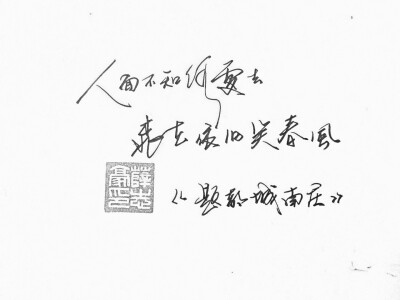 人面不知何處去
桃花依旧笑春風
《題都城南庄》